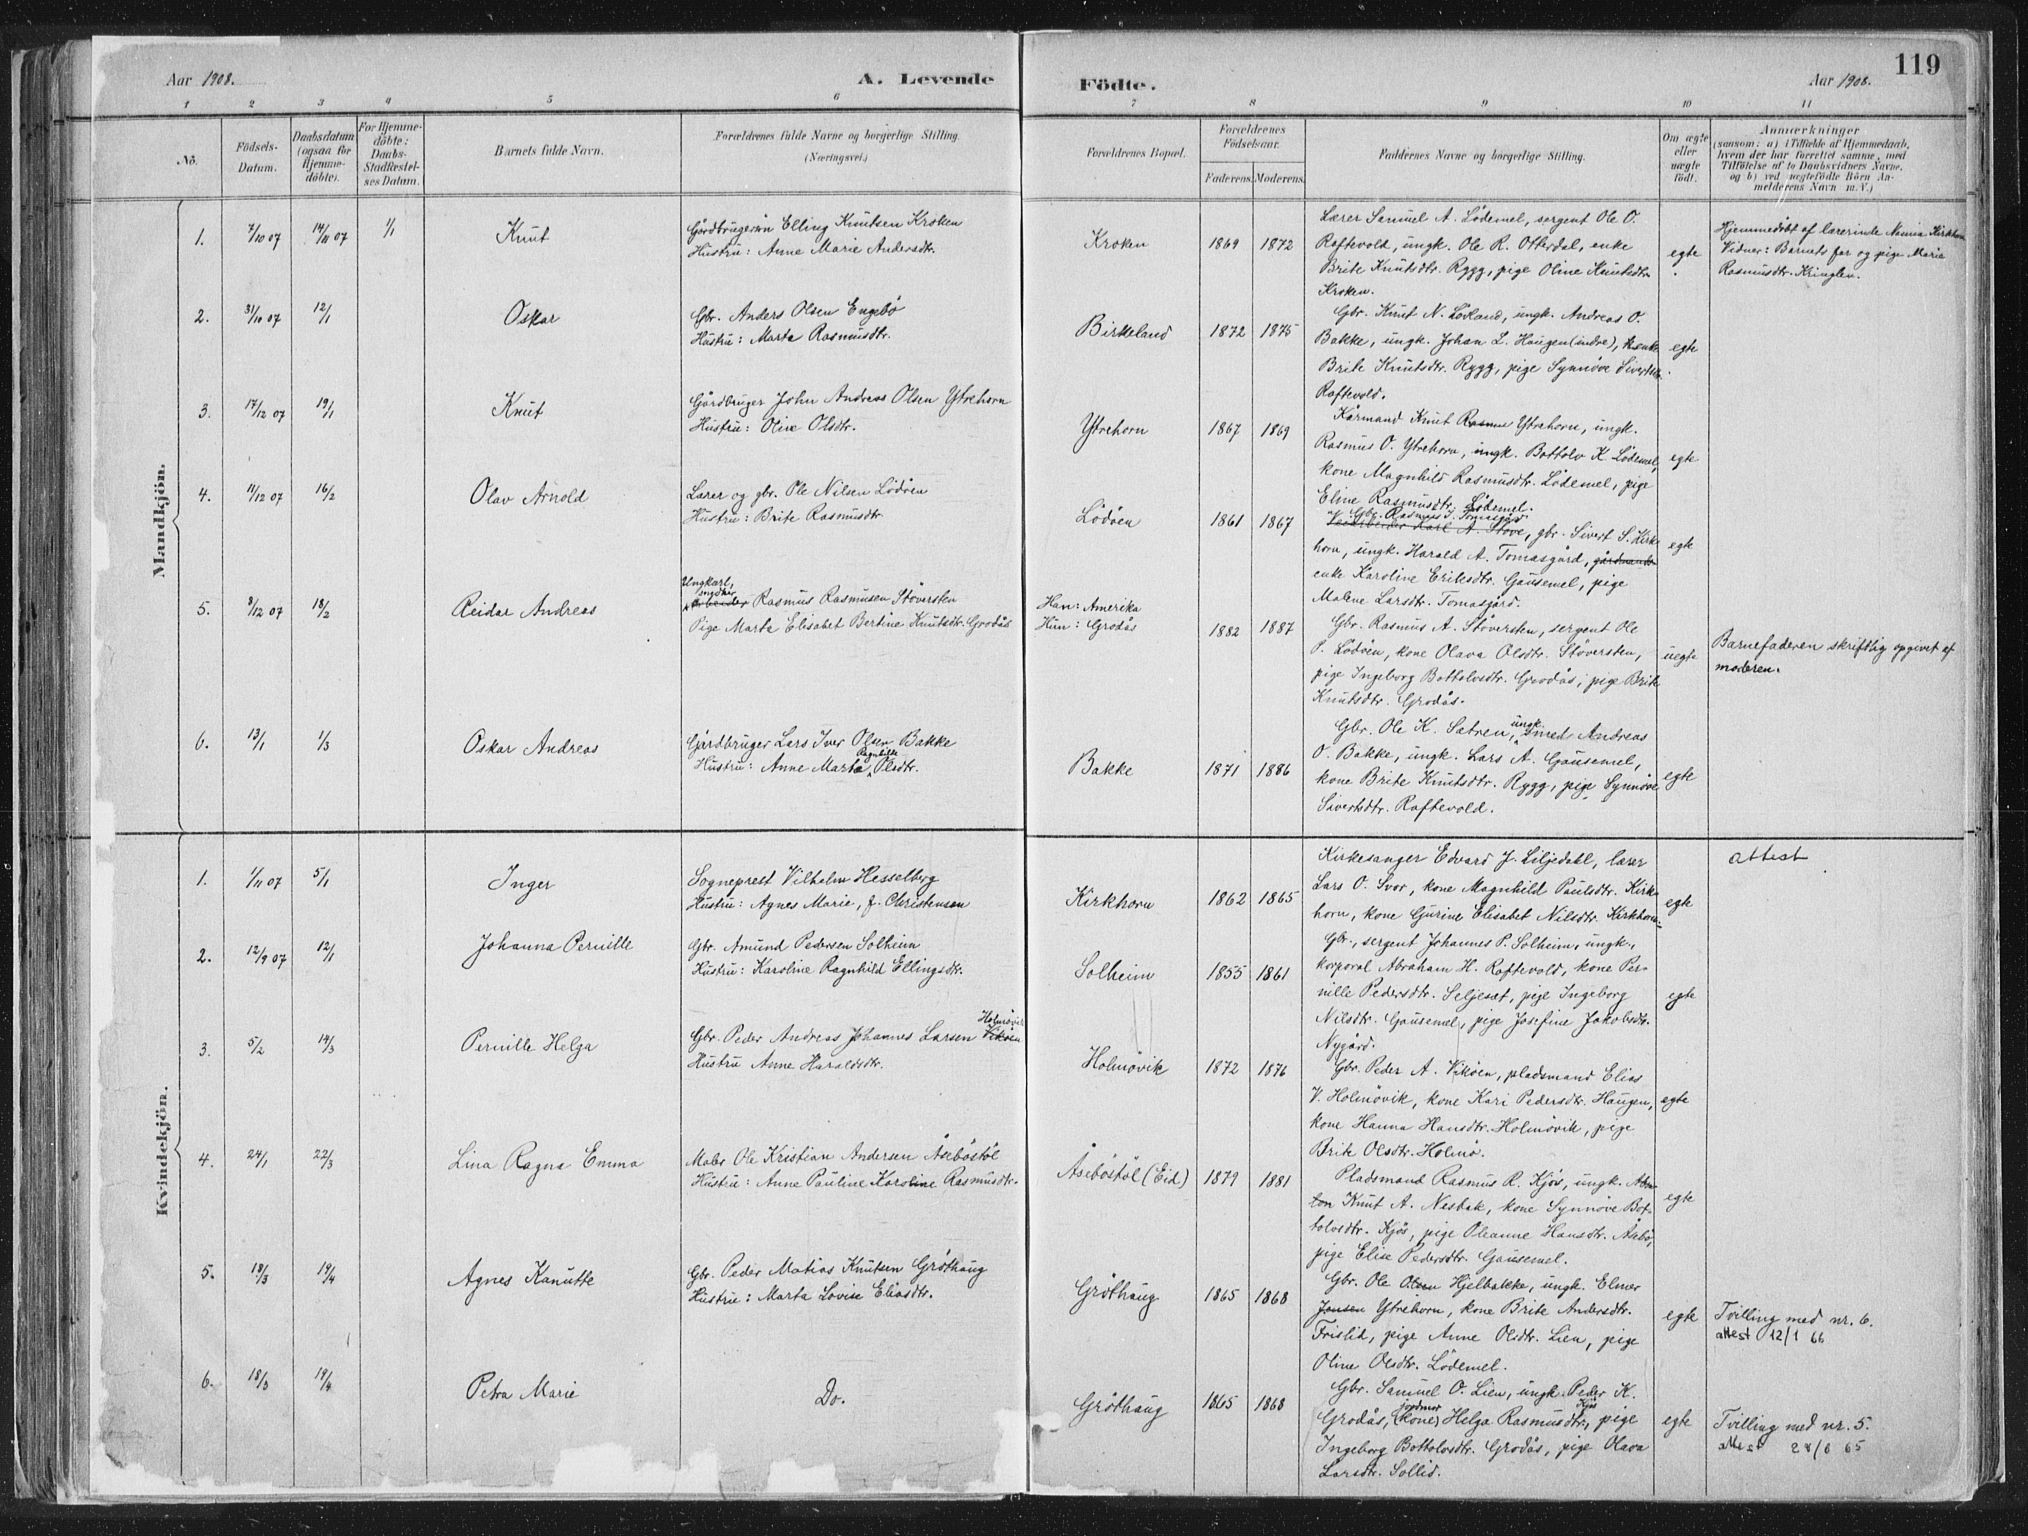 119
Aar 1908.
A. Levende
Födte.
Aar 1908.
1 2 3 4 5 6 7 8 9 10 11
No.
Födsels-
Datum.
Daabsdatum
(ogsaa for
Hjemme-
döbte).
For Hjemme-
döbte:
Daabs-
Stadfæstel-
ses Datum.
Barnets fulde Navn.
Forældrenes fulde Navne og borgerlige Stilling.
(Næringsvei.)
Forældrenes Bopæl.
Forældrenes
Födselsaar.
Faderens. Moderens.
Faddernes Navne og borgerlige Stilling.
Om ægte
eller
uægte
födt.
Anmærkninger
(saasom: a) i Tilfælde af Hjemmedaab,
hvem der har forrettet samme, med
Tilföielse af to Daabsvidners Navne,
og b) ved uægtefödte Börn An-
melderens Navn m. V.)
Mandkjön.
1. 7/10 07 14/11 07 1/1 Knut
Gårdbruger Elling Knutsen Kroken
Hustru: Anne Marie Andersdtr.
Kroken 1869 1872
Lærer Samuel A. Lödemel, sergent Ole O.
Raftevold, ungk. Ole R. Otterdal, enke
Brite Knutsdtr. Rygg, pige Oline Knutsdtr.
Kroken.
egte
Hjemmedöbt af lærerinde Nannia Kirkhorn
Vidner: Barnets far og pige Marie
Rasmusdtr. Kringlen.
2. 31/10 07 12/1 Oskar
Gbr. Anders Olsen Engebö
Hustru: Marta Rasmusdtr.
Birkeland 1872 1875
Gbr. Knut N. Lökland, ungk. Andreas O.
Bakke, ungk. Johan L. Haugen (indre), enke
Brite Knutsdtr. Rygg, pige Synnöve Sivertsdtr.
Raftevold.
egte
3. 17/12 07 19/1 Knut
Gårdbruger John Andreas Olsen Ytrehorn
Hustru: Oline Olsdtr.
Ytrehorn 1867 1869
Kårmand Knut Rasmus Ytrehorn, ungk.
Rasmus O. Ytrehorn, ungk. Bottolv K. Lödemel,
kone Magnhild Rasmusdtr. Lödemel, pige
Eline Rasmusdtr. Lödemel.
egte
4. 11/12 07 16/2 Olav Arnold
Lærer og gbr. Ole Nilsen Lödöen
Hustru: Brite Rasmusdtr.
Lödöen 1861 1867
Gbr. Rasmus J. Tomasgård
Karl A. Stove, gbr. Sivert S. Kirk-
horn, ungk. Harald A. Tomasgård, gårdmands
enke Karoline Eriksdtr. Gausemel, pige
Malene Larsdtr. Tomasgård.
egte
5. 9/12 07 18/2 Reidar Andreas
Ungkarl,
snedker
Arbeider Rasmus Rasmusen Stöversten
Pige Marta Elisabet Bertine Knutsdtr. Grodås
Han: Amerika
Hun: Grodås
1882 1887
Gbr. Rasmus A. Stöversten, sergent Ole
P. Lödöen, kone Olava Olsdtr. Stöversten,
pige Ingeborg Bottolvsdtr. Grodås, pige Brite
Knutsdtr. Grodås.
uegte
Barnefaderen skriftlig opgivet af
moderen.
6. 13/1 1/3 Oskar Andreas
Gårdbruger Lars Iver Olsen Bakke
Ragnhilde
Hustru: Anne Marta Olsdtr.
Bakke 1871 1886
ungk.
Gbr. Ole K. Sætren, smed Andreas
O. Bakke, ungk. Lars A. Gausemel,
kone Brite Knutsdtr. Rygg, pige Synnöve
Sivertsdtr. Raftevold.
egte
Kvindekjön.
1. 1/11 07 5/1 Inger
Sogneprest Vilhelm Hesselberg
Hustru: Agnes Marie, f. Christensen
Kirkhorn 1862 1865
Kirkesanger Edvard J. Liljedahl, lærer
Lars O. Svor, kone Magnhild Paulsdtr. Kirk-
horn, kone Gurine Elisabet Nilsdtr. Kirkhorn.
egte
attest
2. 12/9 07 12/1 Johanna Pernille
Gbr. Amund Pedersen Solheim
Hustru: Karoline Ragnhild Ellingsdtr.
Solheim 1855 1861
Gbr., sergent Johannes P. Solheim, ungk.,
korporal Abraham H. Raftevold, kone Per-
nille Pedersdtr. Seljeset, pige Ingeborg
Nilsdtr. Gausemel, pige Josefine Jakobsdtr.
Nygård.
egte
3. 5/2 14/3 Pernille Helga
Holmövik
Gbr. Peder Andreas Johannes Larsen Viköen
Hustru Anne Haraldsdtr.
Holmövik 1872 1876
Gbr. Peder A. Viköen, pladsmand Elias
V. Holmövik, kone Kari Pedersdtr. Haugen,
kone Hanna Hansdtr. Holmövik, pige
Brite Olsdtr. Holmö.
egte
4. 24/1 22/3 Lina Ragna Emma
Maler Ole Kristian Andersen Åseböstöl
Hustru: Anne Pauline Karoline Rasmusdtr.
Åseböstöl (Eid) 1879 1881
Pladsmand Rasmus R. Kjös, ungk.
Knut A. Nesbak, kone Synnöve Bot-
tolvsdtr. Kjös, pige Oleanne Hansdtr. Åsebö,
pige Elise Pedersdtr. Gausemel.
egte
5. 18/3 19/4 Agnes Kanutte
Gbr. Peder Matias Knutsen Gröthaug
Hustru: Marta Lovise Eliasdtr.
Gröthaug 1865 1868
Gbr. Ole Olsen Hjelbakke, ungk. Elmer
Jansen Ytrehorn, kone Brite Andersdtr.
Frislid, pige Anne Olsdtr. Lien, pige
Oline Olsdtr. Lödemel.
egte
Tvilling med nr. 6.
attest 12/1 66
6. 18/3 19/4 Petra Marie
Do.
Gröthaug 1865 1868
Gbr. Samuel O. Lien, ungk. Peder K.
jordmor Kjös
Grodås, (kone) Helga Rasmusdtr., pige
Ingeborg Bottolvsdtr. Grodås, pige Olava
Larsdtr. Sollid.
egte
Tvilling med nr. 5.
attest 28/6 65